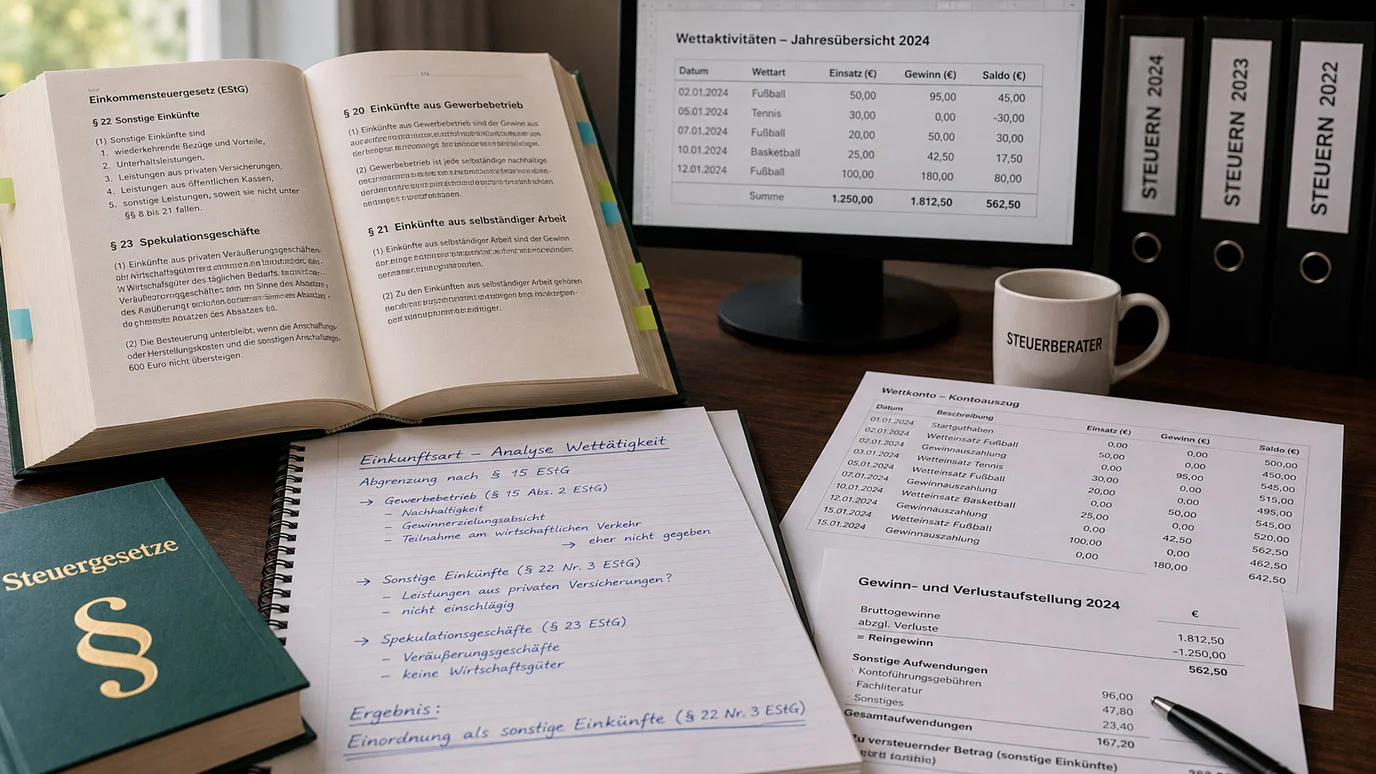 Einkommensteuergesetz (EStG)
§ 22 Sonstige Einkünfte
(1) Sonstige Einkünfte sind
1. wiederkehrende Bezüge und Vorteile,
2. Unterhaltsleistungen,
3. Leistungen aus privaten Versicherungen,
4. Leistungen aus öffentlichen Kassen,
5. sonstige Leistungen, soweit sie nicht unter
§§ 8 bis 21 fallen.
§ 23 Spekulationsgeschäfte
(1) Einkünfte aus privaten Veräußerungsgeschäften
des täglichen Bedarfs
im Sinne des Absatzes
des Absatzes
(2) Die Besteuerung unterbleibt, wenn die Anschaffungs-
oder Herstellungskosten und die sonstigen
600 Euro nicht übersteigen.
§ 20 Einkünfte aus Gewerbebetrieb
(1) Einkünfte aus Gewerbebetrieb sind der Gewinn aus
(2) Gewerbebetrieb ist jede selbständige nachhaltige
§ 21 Einkünfte aus selbständiger Arbeit
(1) Einkünfte aus selbständiger Arbeit sind der Gewinn
(2) Zu den Einkünften aus selbständiger Arbeit gehören
Wettaktivitäten – Jahresübersicht 2024
Datum Wettart Einsatz (€) Gewinn (€) Saldo (€)
02.01.2024 Fußball 50,00 95,00 45,00
05.01.2024 Tennis 30,00 0,00 -30,00
07.01.2024 Fußball 20,00 50,00 30,00
10.01.2024 Basketball 25,00 42,50 17,50
12.01.2024 Fußball 100,00 180,00 80,00
Summe 1.250,00 1.812,50 562,50
STEUERN 2024
STEUERN 2023
STEUERN 2022
STEUERBERATER
Steuergesetze
§
Einkunftsart – Analyse Wettätigkeit
Abgrenzung nach § 15 EStG
→ Gewerbebetrieb (§ 15 Abs. 2 EStG)
– Nachhaltigkeit
– Gewinnerzielungsabsicht
– Teilnahme am wirtschaftlichen Verkehr
→ eher nicht gegeben
→ Sonstige Einkünfte (§ 22 Nr. 3 EStG)
– Leistungen aus privaten Versicherungen?
– nicht einschlägig
→ Spekulationsgeschäfte (§ 23 EStG)
– Veräußerungsgeschäfte
– keine Wirtschaftsgüter
Ergebnis:
Einordnung als sonstige Einkünfte (§ 22 Nr. 3 EStG)
Wettkonto – Kontoauszug
Datum Beschreibung Einsatz (€) Gewinn (€) Saldo (€)
01.01.2024 Startguthaben 0,00 0,00 500,00
02.01.2024 Wetteinsatz Fußball 50,00 0,00 450,00
02.01.2024 Gewinnauszahlung 0,00 95,00 545,00
03.01.2024 Wetteinsatz Tennis 30,00 0,00 515,00
05.01.2024 Wetteinsatz Fußball 20,00 0,00 495,00
07.01.2024 Gewinnauszahlung 0,00 50,00 545,00
10.01.2024 Wetteinsatz Basketball 25,00 0,00 520,00
12.01.2024 Gewinnauszahlung 0,00 42,50 562,50
15.01.2024 Wetteinsatz Fußball 100,00 0,00 462,50
15.01.2024 Gewinnauszahlung 0,00 180,00 642,50
Gewinn- und Verlustaufstellung 2024
€
Bruttogewinne 1.812,50
abzgl. Verluste -1.250,00
= Reingewinn 562,50
Sonstige Aufwendungen
· Kontoführungsgebühren 96,00
· Fachliteratur 47,80
· Sonstiges 23,40
Gesamtaufwendungen 167,20
Zu versteuernder Betrag (sonstige Einkünfte)